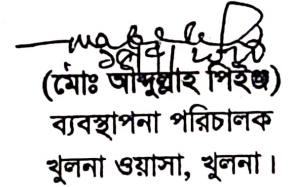 (মোঃ আব্দুল্লাহ পিইঞ্জ)
ব্যবস্থাপনা পরিচালক
খুলনা ওয়াসা, খুলনা।